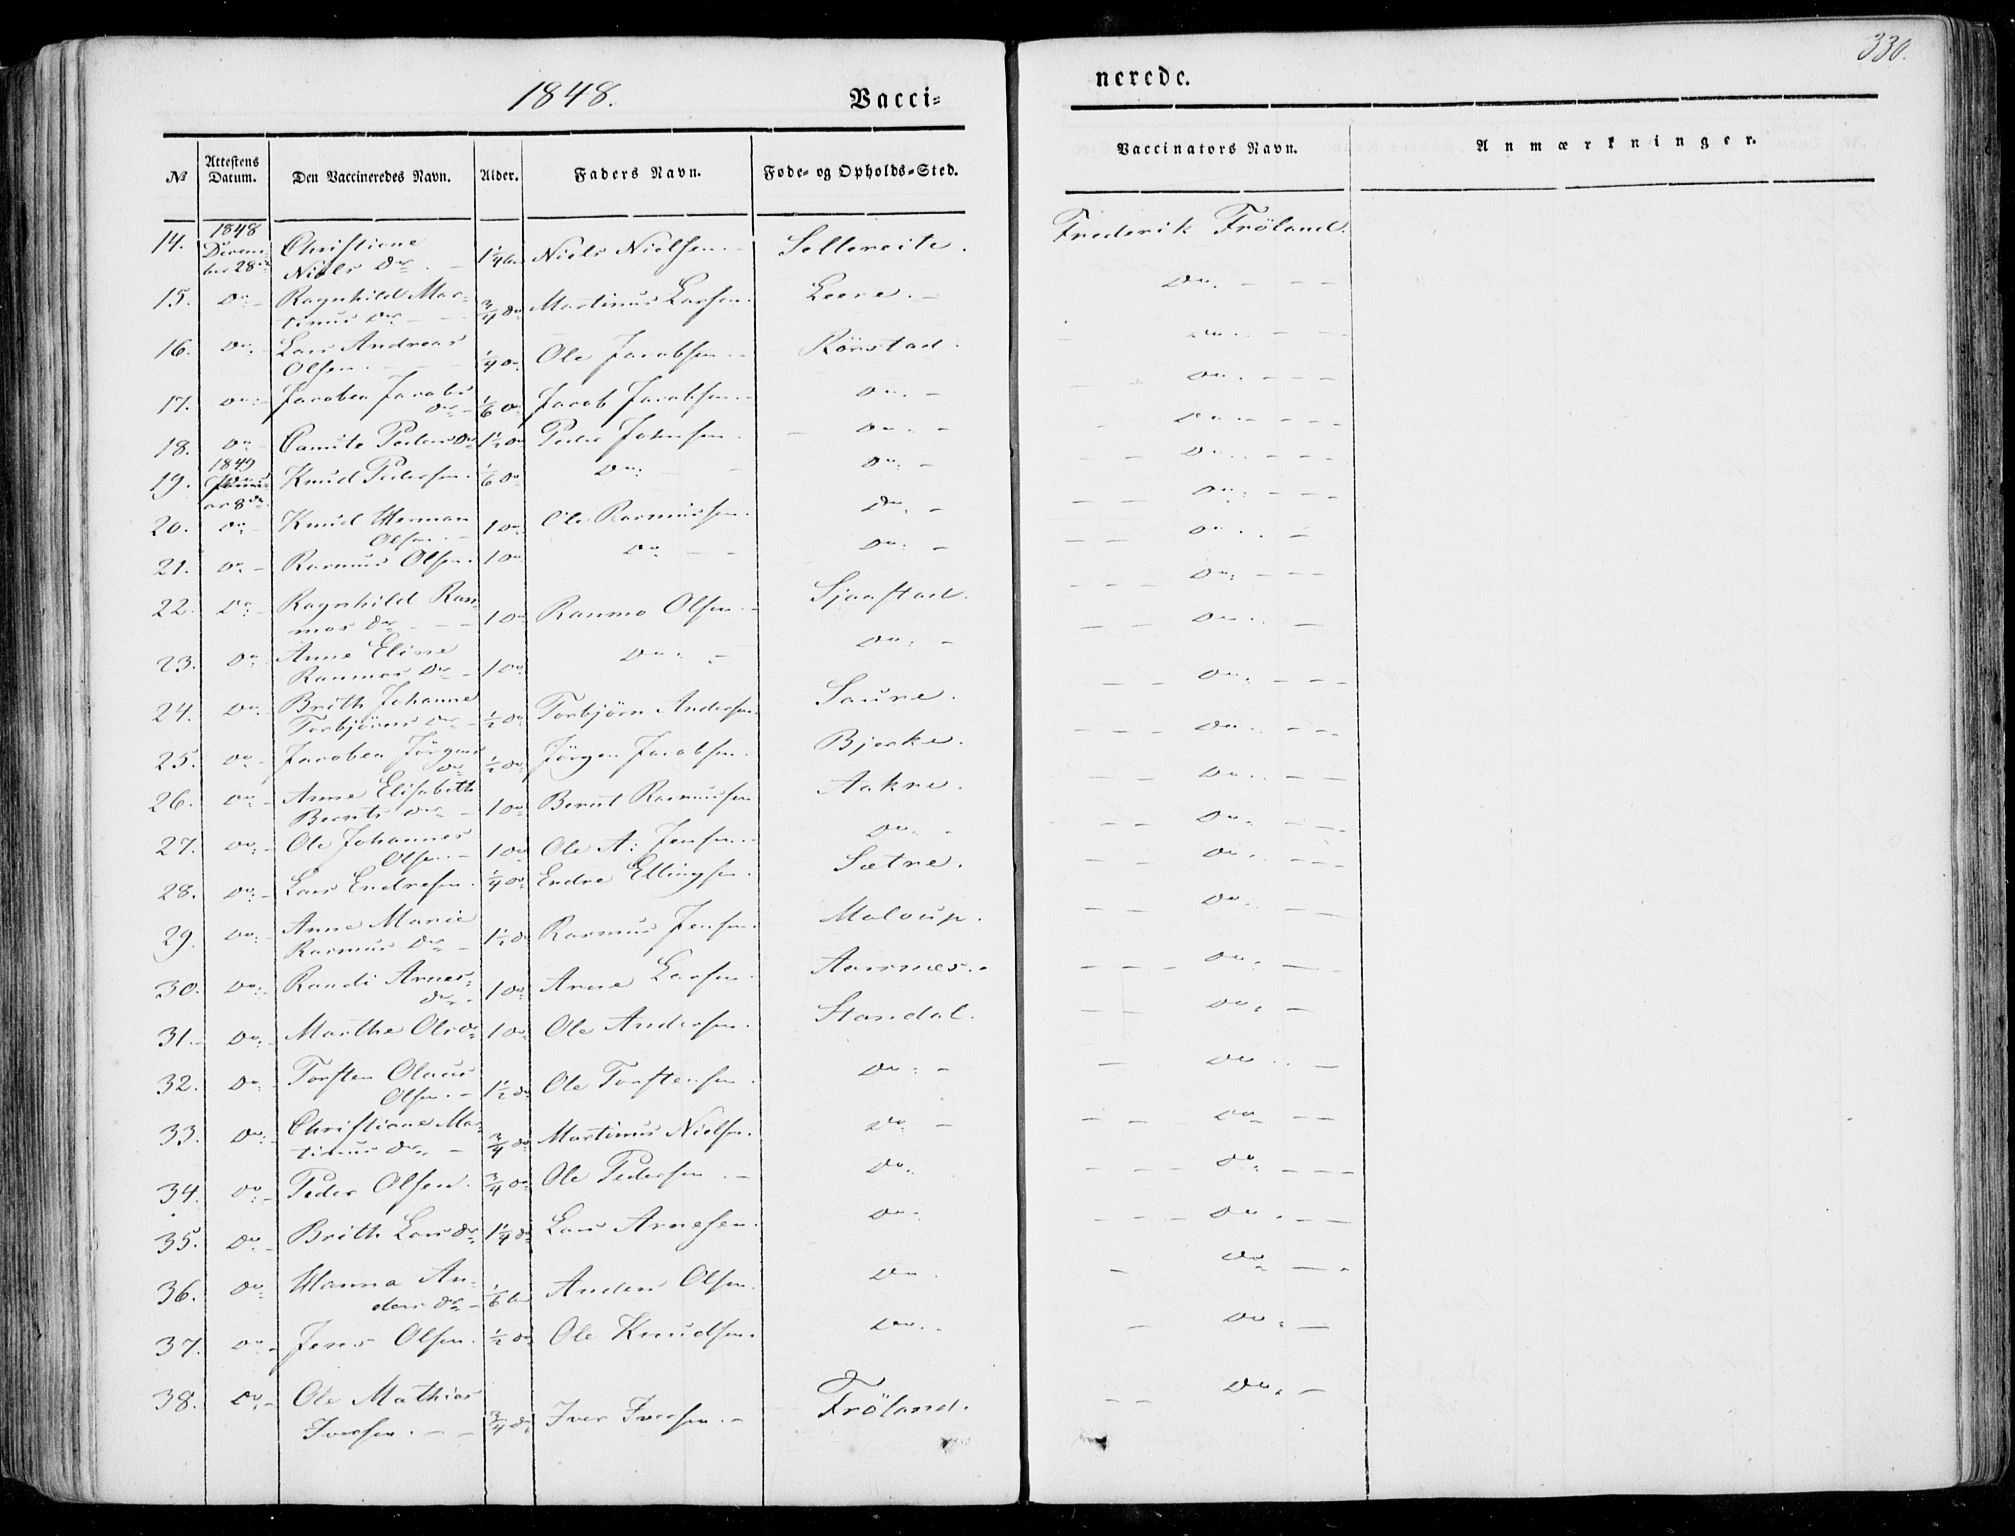 330.
1848.
Vacci=
nerede.
№
Attestens Datum.
Den Vaccineredes Navn.
Alder.
Faders Navn.
Føde= og Opholds=Sted.
Vaccinators Navn.
Anmærkninger.
14. 1848 Decem- Christiane 1¼ Niels Nielsen. Sellereite. Frederik Fröland.
ber 28de Niels Dr.
15. Do. Ragnhild Mar- ¾ Do Martinus Larsen. Leere. Do.
tinus Dr
16. Do. Lars Andreas ¼ Do. Ole Jacobsen. Rörstad. Do.
Olsen.
17. Do. Jacobea Jacobs Dr 1/6 Do Jacob Jacobsen. Do. Do.
18. Do Peders Dr 1½ Do Peder Johnsen. Do. Do.
19. 1849 Janu- Knud Pedersen. 1/6 Do Do. Do. Do.
ar 8de
20. Do Knud Herman 1 Do Ole Rasmussen. Do. Do.
Olsen.
21. Do Rasmus Olsen. 1 Do Do Do. Do.
22. Do. Ragnhild Ras- 1 Do Olsen. Sjaastad. Do.
mos Dr
23. Do. Anne Eline 1 Do Do. Do. Do.
Dr
24. Do. Brith Johanne ½ Do Torbjörn Andersen. Saure. Do.
Torbjörns Dr
25. Do Jacobea Jörgens Dr ½ Do Jörgen Jacobsen. Bjerke. Do.
26. Do Anne Elisabeth 1 Do Bernt Rasmussen Aakre. Do.
Bernts Dr
27. Do. Ole Johannes 1 Do Ole A: Jensen. Do. Do.
Olsen.
28. Do. Lars Endresen. ¼ Do Endre Ellingsen. Sætre. Do.
29. Do. Anne Marie 1½ Do Rasmus Jensen. Do.
Rasmus Dr
30. Do. Randi Arnes- Dr 1 Do Arne Larsen. Aarsnæs. Do.
31. Do. Marthe Ols Dr 1 Do Ole Andersen. Standal. Do.
32. Do. Torsten Olaus 1½ Do Ole Torstensen. Do. Do
Olsen.
33. Do. Christiane Mar- ¾ Do Martinus Nielsen. Do. Do
tinus Dr
34. Do. Peder Olsen. ¾ Do Ole Pedersen. Do. Do
35. Do. Brith Lars Dr 1¼ Do Lars Arnesen. Do. Do.
36. Do. Hanna An- 1/6 Anders Olsen. Do. Do
ders Dr
37. Do. Jens Olsen. ½ Do Ole Knudsen. Do. Do.
38. Do. Ole Mathias ¾ Do Iver Iversen. Fröland. Do.
Iversen.